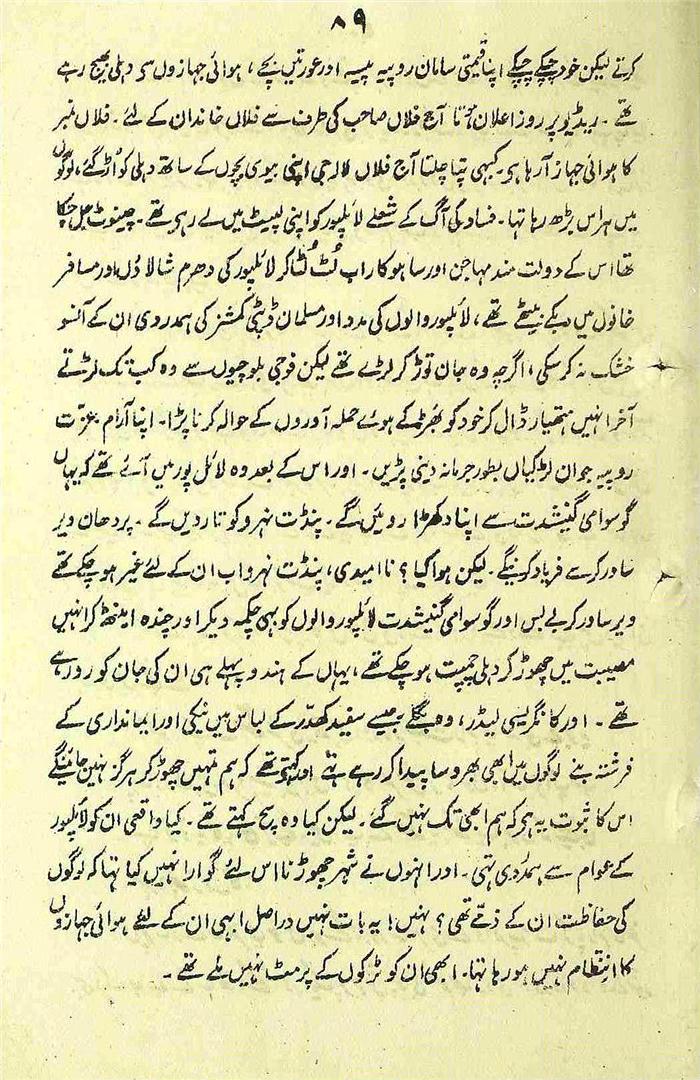 ۸۹
کرتے لیکن خود چپکے چپکے اپنا قیمتی سامان روپیہ پیسہ اور عورتیں بچے، ہوائی جہازوں سے دہلی بھیج رہے
تھے۔ ریڈیو پر روز اعلان ہوتا آج فلاں صاحب کی طرف سے فلاں خاندان کے لئے۔ فلاں نمبر
کا ہوائی جہاز آ رہا ہی۔ کبھی پتا چلتا آج فلاں لالہ جی اپنی بیوی بچوں کے ساتھ دہلی کو اُڑ گئے، لوگوں
میں ہراس بڑھ رہا تہا۔ فساد کی آگ کے شعلے لائلپور کو اپنی لپیٹ میں لے رہی تھے۔ چینوٹ جل چکا
تھا اس کے دولت مند مہاجن اور ساہوکار اب لُٹ لُٹا کر لائلپور کی دھرم شالاؤں اور مسافر
خانوں میں بیٹھے تھے، لائلپور والوں کی مدد اور مسلمان ڈپٹی کمشنر کی ہمدردی ان کے آنسو
خشک نہ کر سکی، اگرچہ وہ جان توڑ کر لڑے تھے لیکن فوجی بلوچیوں سے وہ کب تک لڑتے
آخر انہیں ہتھیار ڈال کر خود کو بھڑکے ہوئے حملہ آوروں کے حوالہ کرنا پڑا۔ اپنا آرام عزّت
روپیہ جوان لڑکیاں بطور جرمانہ دینی پڑیں۔ اور اس کے بعد وہ لائل پور میں آئے تھے کہ یہاں
گوسوامی گنیشدت سے اپنا دکھڑا روئیں گے۔ پنڈت نہرو کو تار دیں گے۔ پردھان ویر
ساورکر سے فریاد کرینگے۔ لیکن ہوا کیا؟ نا امیدی، پنڈت نہرو اب ان کے لئے غیر ہو چکے تھے
ویر ساورکر بے بس اور گوسوامی گنیشدت لائلپور والوں کو بھی چکمہ دیکر اور چندہ اینٹھ کر انہیں
مصیبت میں چھوڑ کر دہلی چمپت ہو چکے تھے، یہاں کے ہندو پہلے ہی ان کی جان کو رو رہے
تھے۔ اور کانگریسی لیڈر، وہ بگلے جیسے سفید کھدّر کے لباس میں نیکی اور ایمانداری کے
فرشتہ بنے لوگوں میں ابھی بھروسا پیدا کر رہے تھے اور کہتے تھے کہ ہم تمہیں چھوڑ کر ہرگز نہیں جائینگے
اس کا ثبوت یہ ہی کہ ہم ابھی تک نہیں گئے۔ لیکن کیا وہ سچ کہتے تھے۔ کیا واقعی ان کو لائلپور
کے عوام سے ہمدردی تہی۔ اور انہوں نے شہر چھوڑنا اس لئے گوارا نہیں کیا تہا کہ لوگوں
کی حفاظت ان کے ذمّے تھی؟ نہیں! یہ بات نہیں دراصل ابہی ان کے لئے ہوائی جہازوں
کا انتظام نہیں ہو رہا تہا۔ ابھی ان کو ٹرکوں کے پرمٹ نہیں ملے تھے۔